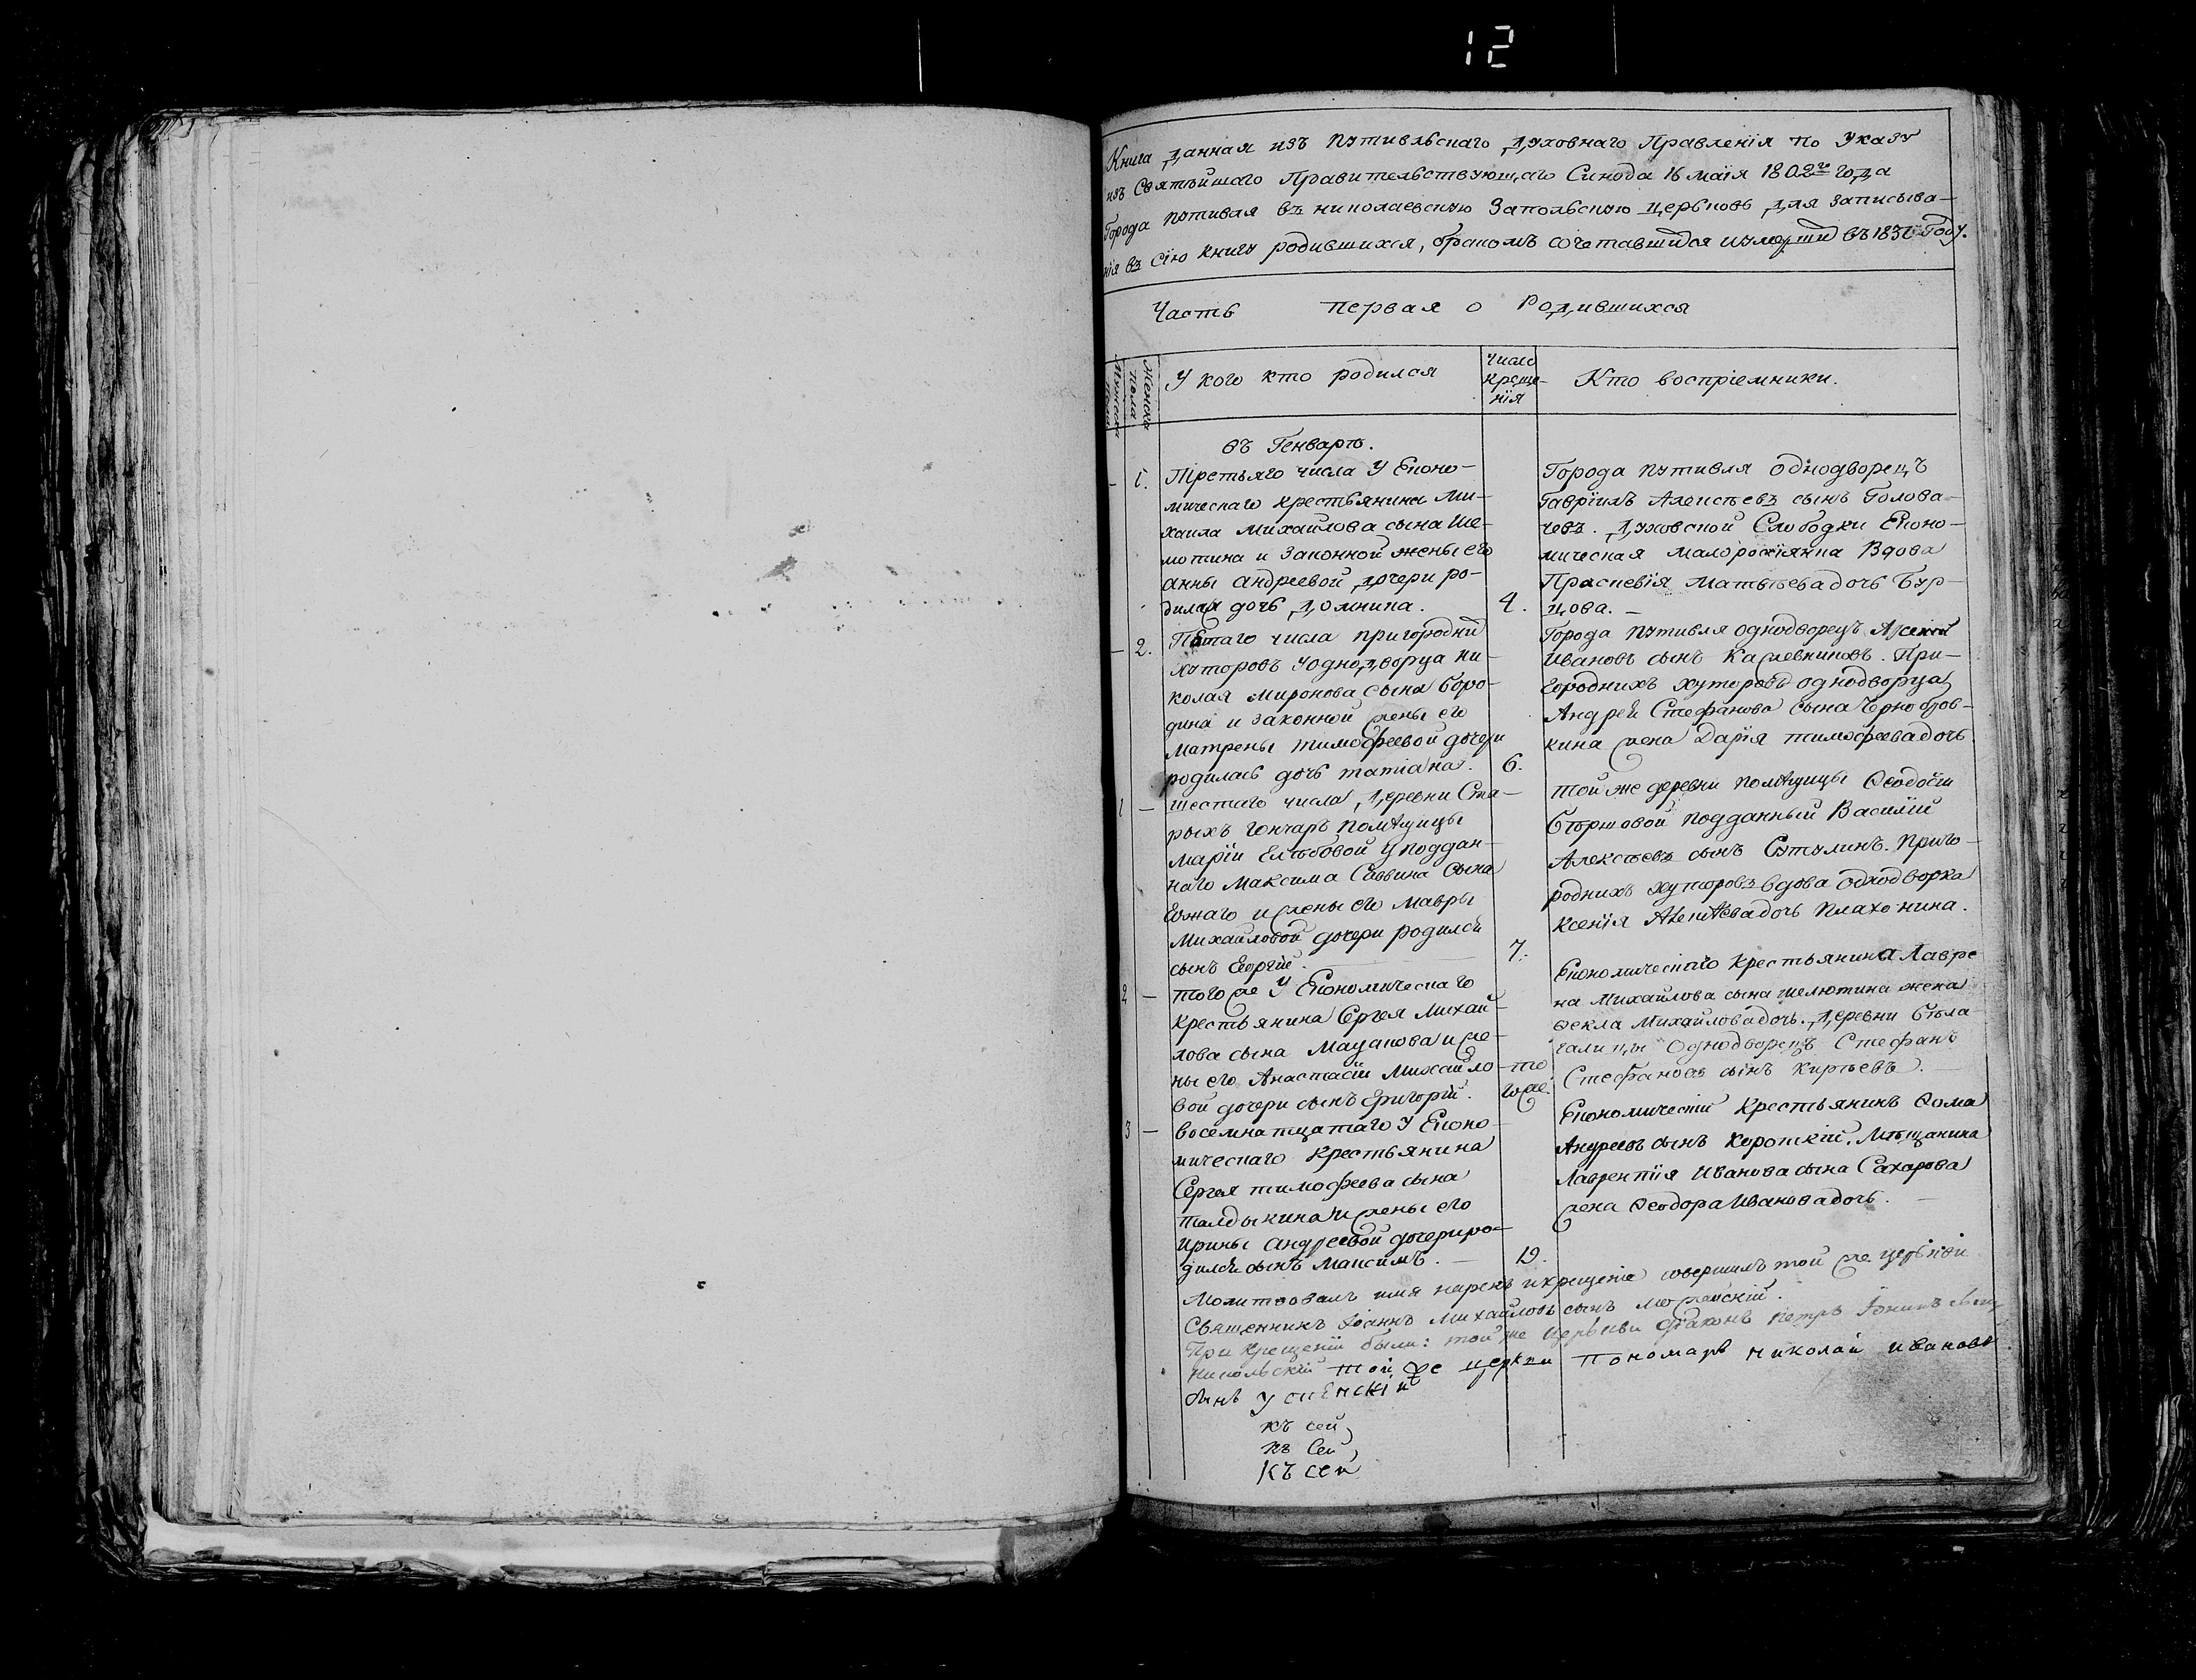 12
Книга данная изъ Путивльскаго Духовнаго Правленія по Указу
изъ Святѣйшаго Правительствующаго Синода 16 маія 1802го года
Города Путивля въ николаевскую Запольскую церьковь для записыва-
нія въ сію книгу родившихся, бракомъ сочетавшихся въ Году.
Часть первая о Родившихся
Мужеска пола
Женска пола
У кого кто родился
Число креще-нія
Кто воспріемники.
въ Генварѣ.
- 1. Третьяго числа У Еконо-
мическаго крестьянина Ми-
хаила Михайлова сына Ше-
мотина и Законной жены его
анны андреевой дочери ро-
дилася дочь Домника. 4.
Города Путивля однодворецъ
Гавріилъ Алексѣевъ сынъ Голова-
чевъ. Духовской Слободки Еконо-
мическая малоросіянка Вдова
Праскевія Матвѣева дочь Бур-
цова. -
- 2. Пятаго числа пригородних
хуторовъ у однодворца Ни-
колая Миронова сына Боро-
дина и законной жены его
Матрены тимофеевой дочери
родилась дочь татіана. 6.
Города Путивля однодворецъ
Ивановъ сынъ. При-
городнихъ хуторовъ однодворца
Андрея Стефанова сына Чернобров-
кина жена Дарія тимофеева дочь
1 - шестаго числа деревни Ста-
рыхъ гончаръ помѣщицы
маріи Елѣбовой у поддан-
наго Максима Саввина сына
и жены его мавры
Михайловой дочери родился
сынъ Георгій. 7.
той же деревни помѣщицы Феодосіи
подданный Василій
Алексѣевъ сынъ Сутулинъ. Приго-
роднихъ хуторовъ вдова однодворка
Ксенія дочь Плахонина.
2 - того же У Економическаго
крестьянина Сергея Михай-
лова сына Мацакова и же-
ны его Анастасіи Михайло-
вой дочери сынъ Григорій. то-
го же.
Економическаго крестьянина Лавре
на Михайлова сына шелютина жена
Фекла Михайлова дочь. Деревни Бѣла-
галицы Однодворецъ Стефанъ
Стефановъ сынъ Кирѣевъ.
3 - восемнатцатаго У Еконо-
мическаго крестьянина
Сергея тимофеева сына
талдыкина и жены его
Ирины андреевой дочери ро-
дился сынъ Максимъ. - 19.
Економическій крестьянинъ Фома
Андреевъ сынъ Короткій. Мѣщанина
Лаврентія Иванова сына Сахарова
жена Феодора Иванова дочь. -
Молитвовалъ имя нарекъ и крещеніе совершилъ той же церькви
Священникъ Іоаннъ Михайловъ сынъ
При крещеніи были: той же церькви діаконъ Петръ сынъ
Никольскій той же церкви пономарь николай ивановъ
сынъ Успенскій
къ сей
къ сей
къ сей